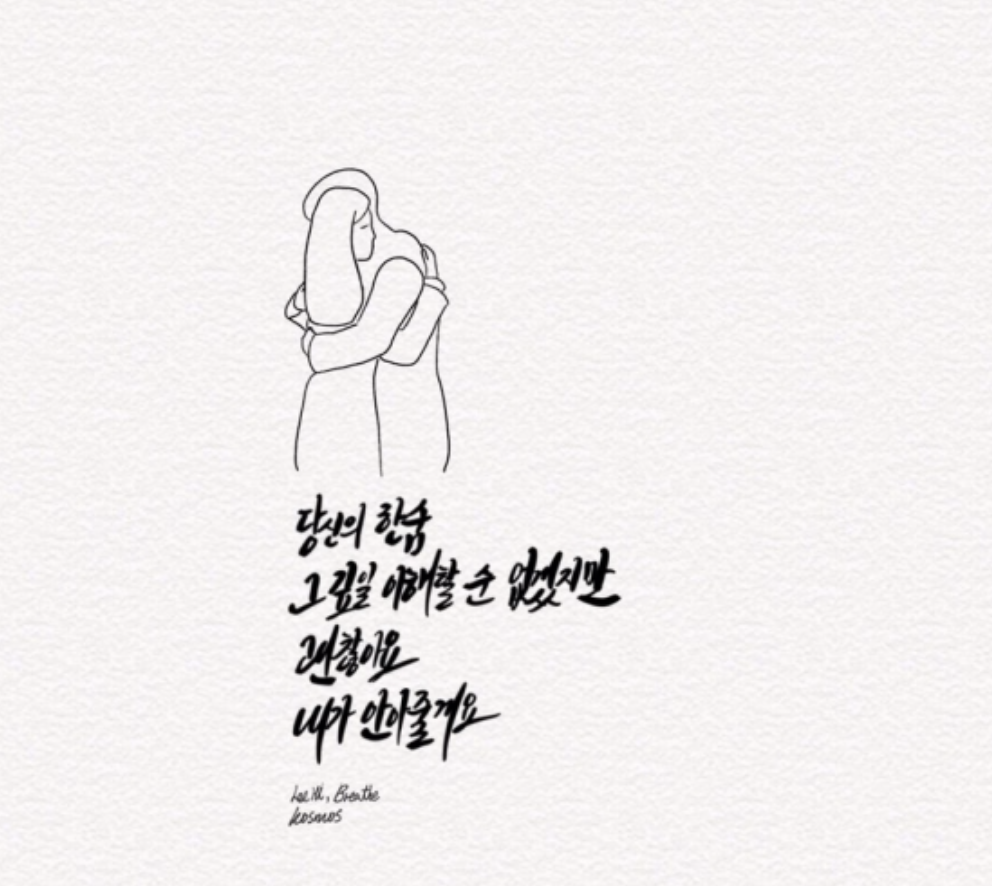 당신의 한숨
그 깊일 이해할 순 없겠지만
괜찮아요
내가 안아줄게요
Lee Hi, Breathe
kosmos